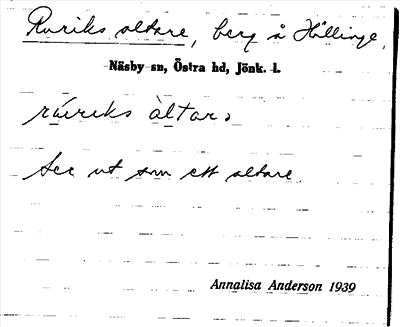 Ruriks altare, berg å Hällinge,
Näsby sn, Östra hd, Jönk. l.
altar,
Ser ut som ett altare.
Annalisa Anderson 1939